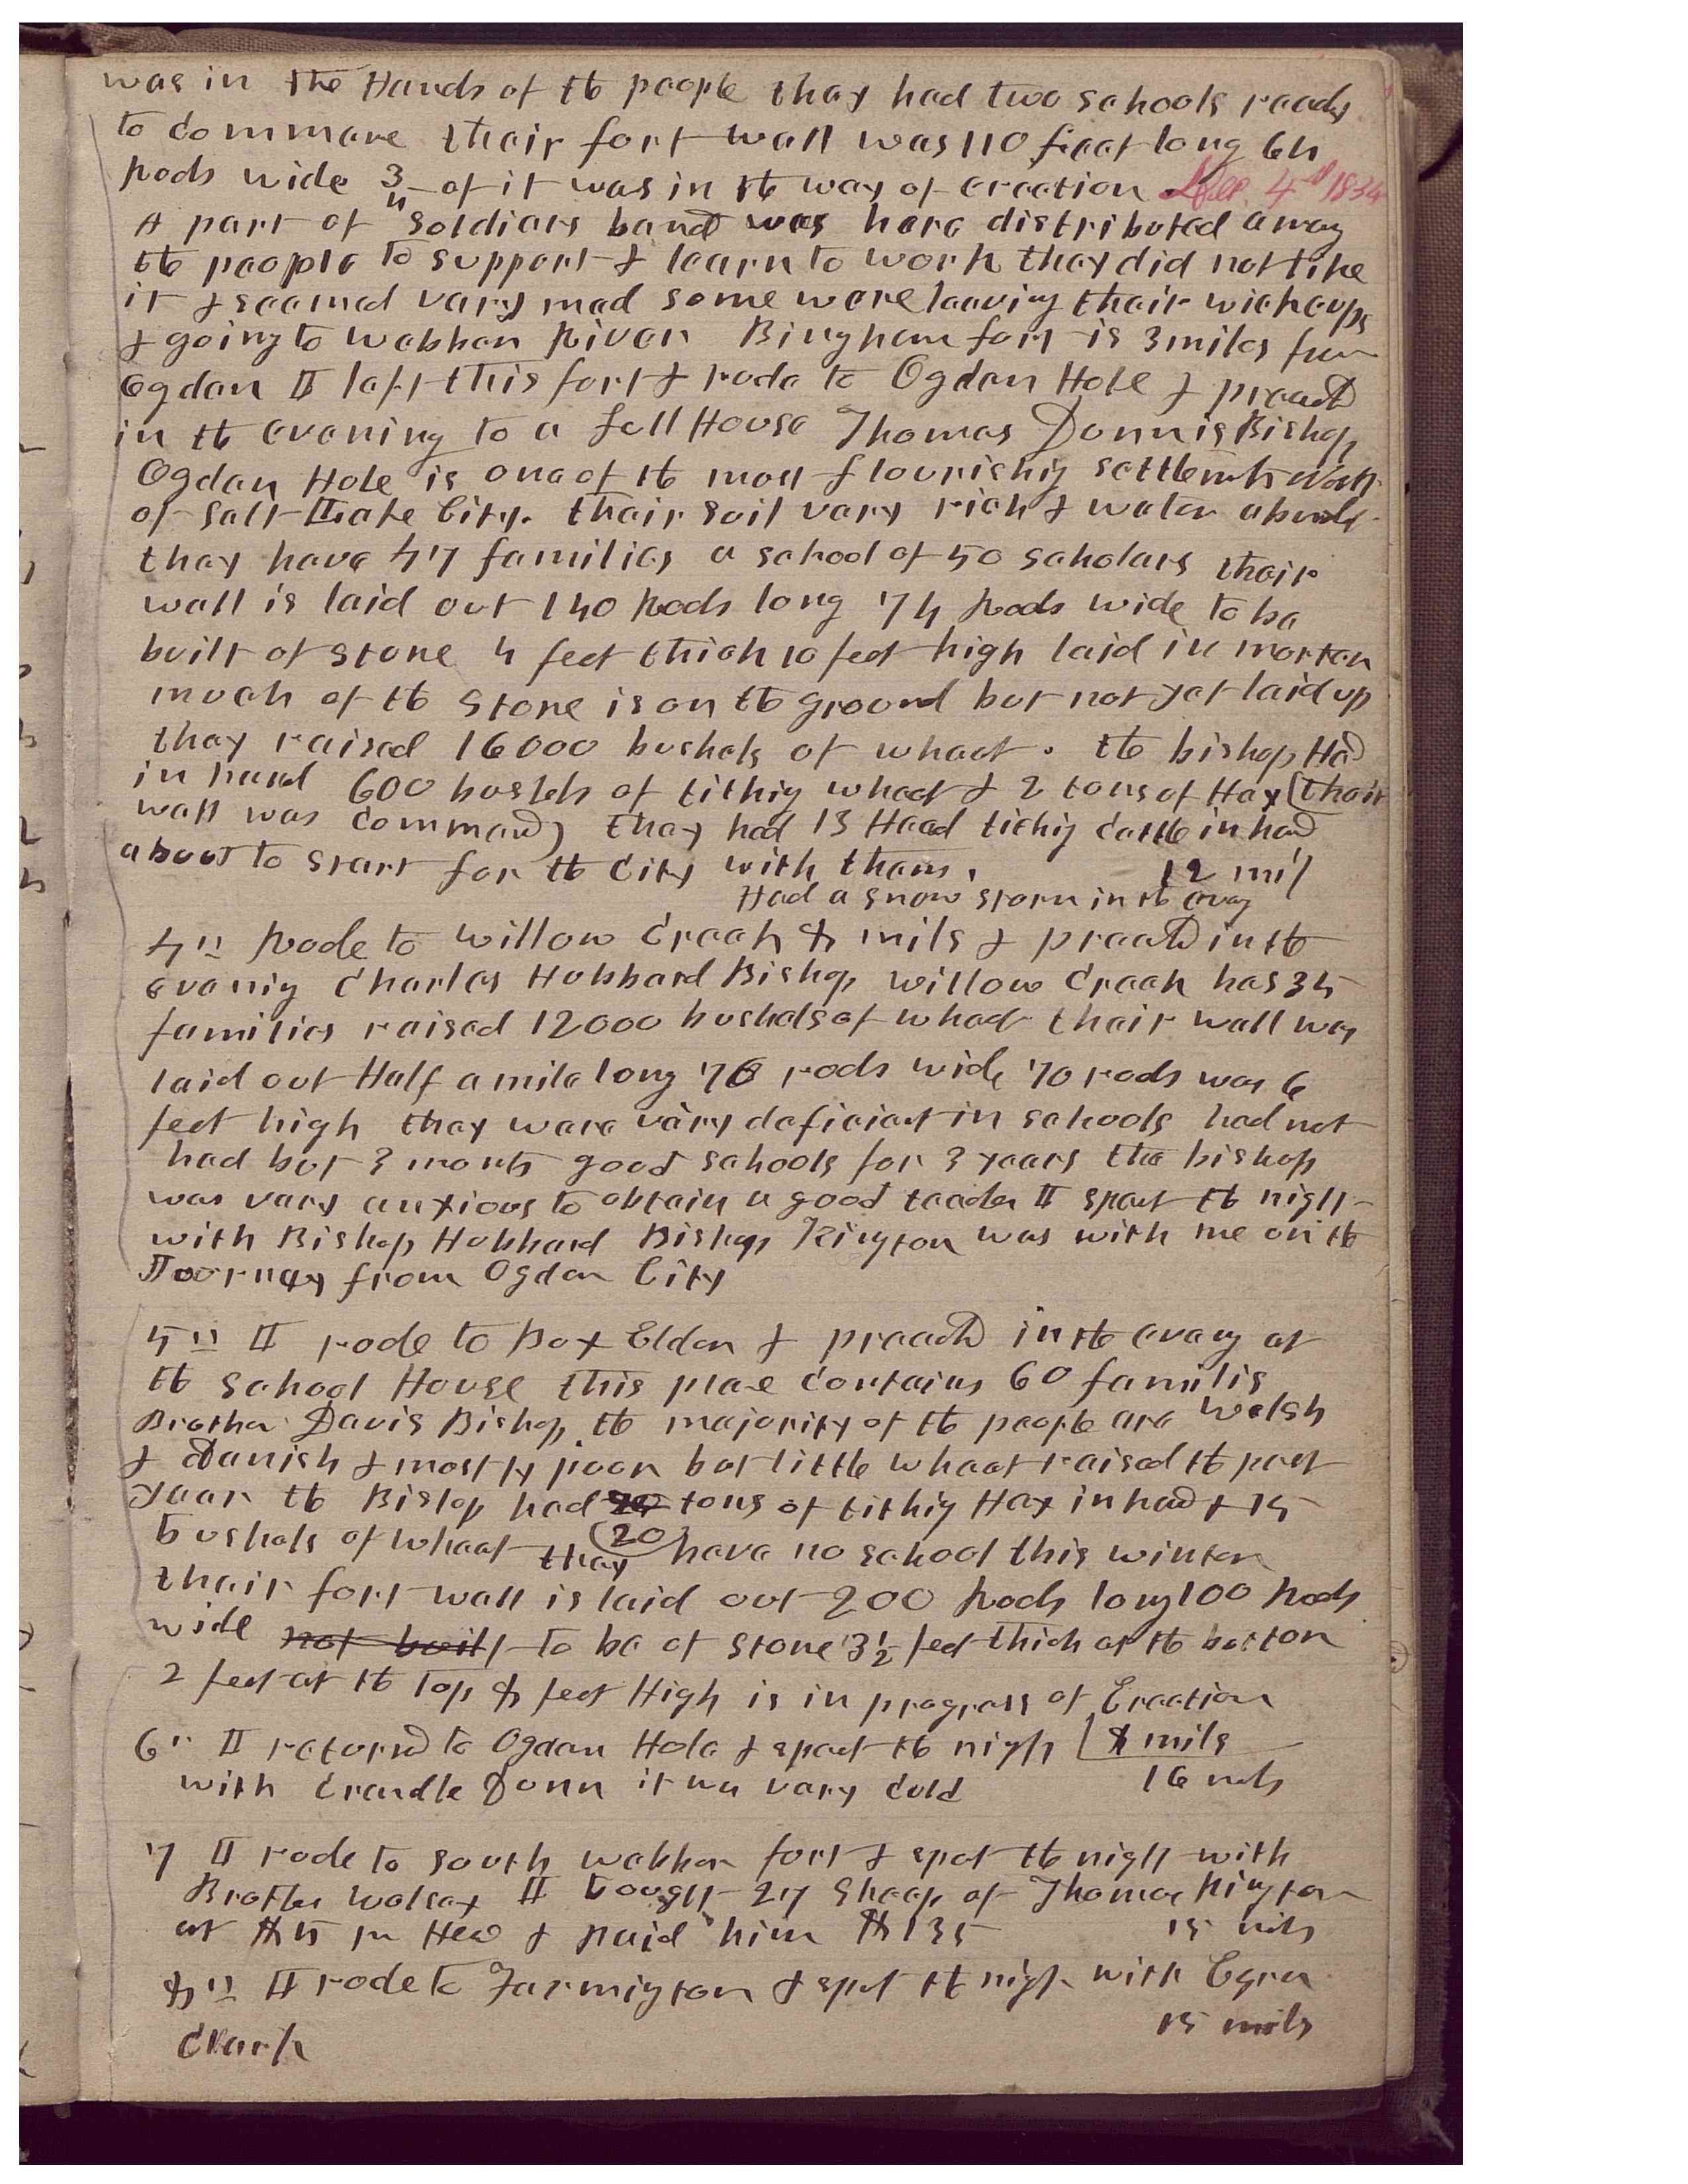 was in the Hands of the people they had two schools ready
to commence their fort wall was 110 feet long 64
Rods wide 3/4 of it was in the way of erection Dec. 4th 1854
A part of soldiers band was here distributed among
the people to support & learn to work they did not like
it & seemed very mad some were leaving their wickeups
& going to Webber River Bingham fort is 3 miles from
Ogden I left this fort & rode to Ogden Hole & preachd
in the evening to a full House Thomas Dunn is Bishop
Ogden Hole is one of the most flourishig settlemets North
of Salt Lake City. their soil very rich & water abundt
they have 47 families a school of 50 scholars their
wall is laid out 140 Rods long 74 Rods wide to be
built of stone 4 feet thick 10 feet high laid in morter
much of the stone is on the ground but not yet laid up
they raised 16000 bushels of wheat. the bishop Had
in hand 600 bushels of tithig wheat & 2 tons of Hay (their
wall was commencd) they had 13 Head tithig cattle in hand
about to start for the City with them. 12 mil
Had a snow storm in the eveng
4th Rode to Willow Creek 8 mils & preachd in the
evenig Charles Hubbard Bishop Willow Creek has 34
families raised 12000 bushels of wheat their wall was
laid out Half a mile long 76 rods wide 70 rods was 6
feet high they were very deficient in schools had not
had but 3 months good schools for 3 years the bishop
was very anxious to obtain a good teacher I spent the night
with Bishop Hubbard Bishop Kington was with me on the
Journey from Ogden City
5th I rode to Box Elder & preachd in the eveng at
the school House this place contains 60 familis
Brother Davis Bishop the majority of the people are Welsh
& Danish & mostly poor but little wheat raised the past
year the Bishop had 20 tons of tithig Hay in hand & 15
bushels of wheat they (20) have no school this winter
their fort wall is laid out 200 Rods long 100 Rods
wide not built to be of stone 3½ feet thick at the bottom
2 feet at the top 8 feet High is in progress of Erection
6th I returnd to Ogden Hole & spent the night 8 mils
with Crandle Dunn it was very cold 16 mils
7 I rode to South Webber fort & spet the night with
Brother Wolsey I bought 27 Sheep of Thomas Kington
at $5 pr Head & paid him $135 15 mils
8th I rode to Farmington & spet the night with Ezra
15 mils
Clark